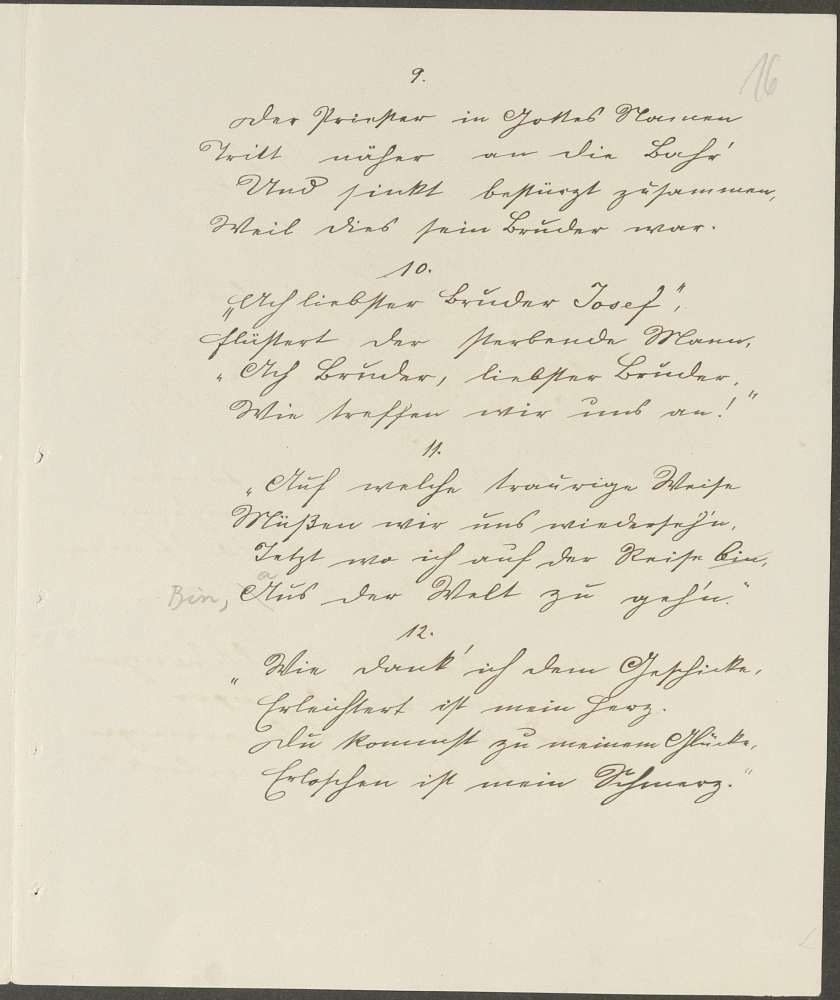 16
9.
Der Priester in Gottes Namen
Tritt näher an die Bahr'
Und sinkt bestürzt zusammen,
Weil dies sein Bruder war.
10.
„Ach liebster Bruder Josef",
flüstert der sterbende Mann,
„Ach Bruder, liebster Bruder,
Wie treffen wir uns an!"
11.
„Auf welche traurige Weise
Müßen wir uns wiederseh'n,
Jetzt wo ich auf der Reise bin,
Bin, aus der Welt zu geh'n."
12.
„Wie dank' ich dem Geschicke,
Erleichtert ist mein Herz.
Du kommst zu meinem Glücke,
Erloschen ist mein Schmerz."